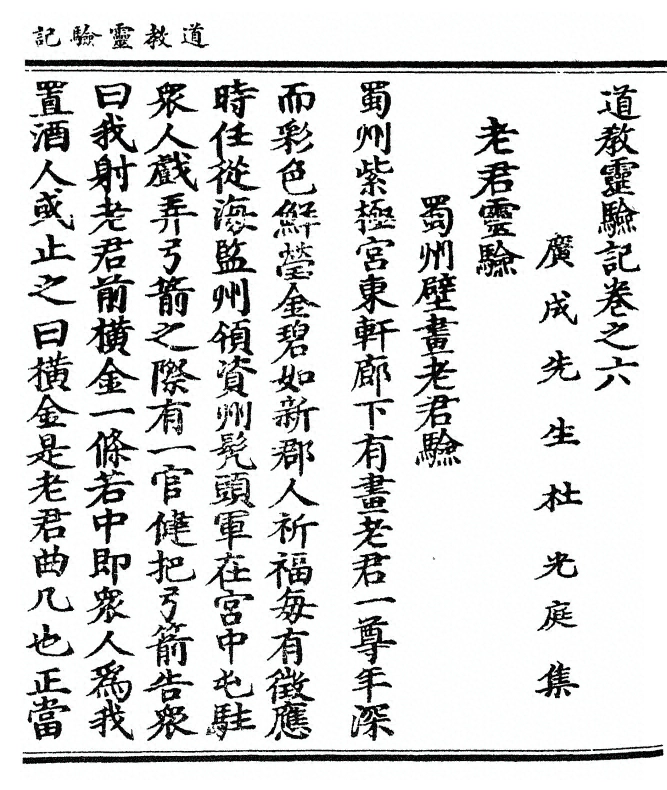 道教靈驗記
道教靈驗記卷之六
廣成先生杜光庭集
老君靈驗
蜀州壁畫老君驗
蜀州紫極宮東軒廊下有畫老君一尊年深
而彩色鮮瑩金碧如新郡人祈福每有徵應
時任從海監州領資州髡頭軍在宮中屯駐
衆人戲弄弓箭之際有一官健把弓箭告衆
曰我射老君前橫金一條若中即衆人爲我
置酒人或止之曰橫金是老君曲几也正當